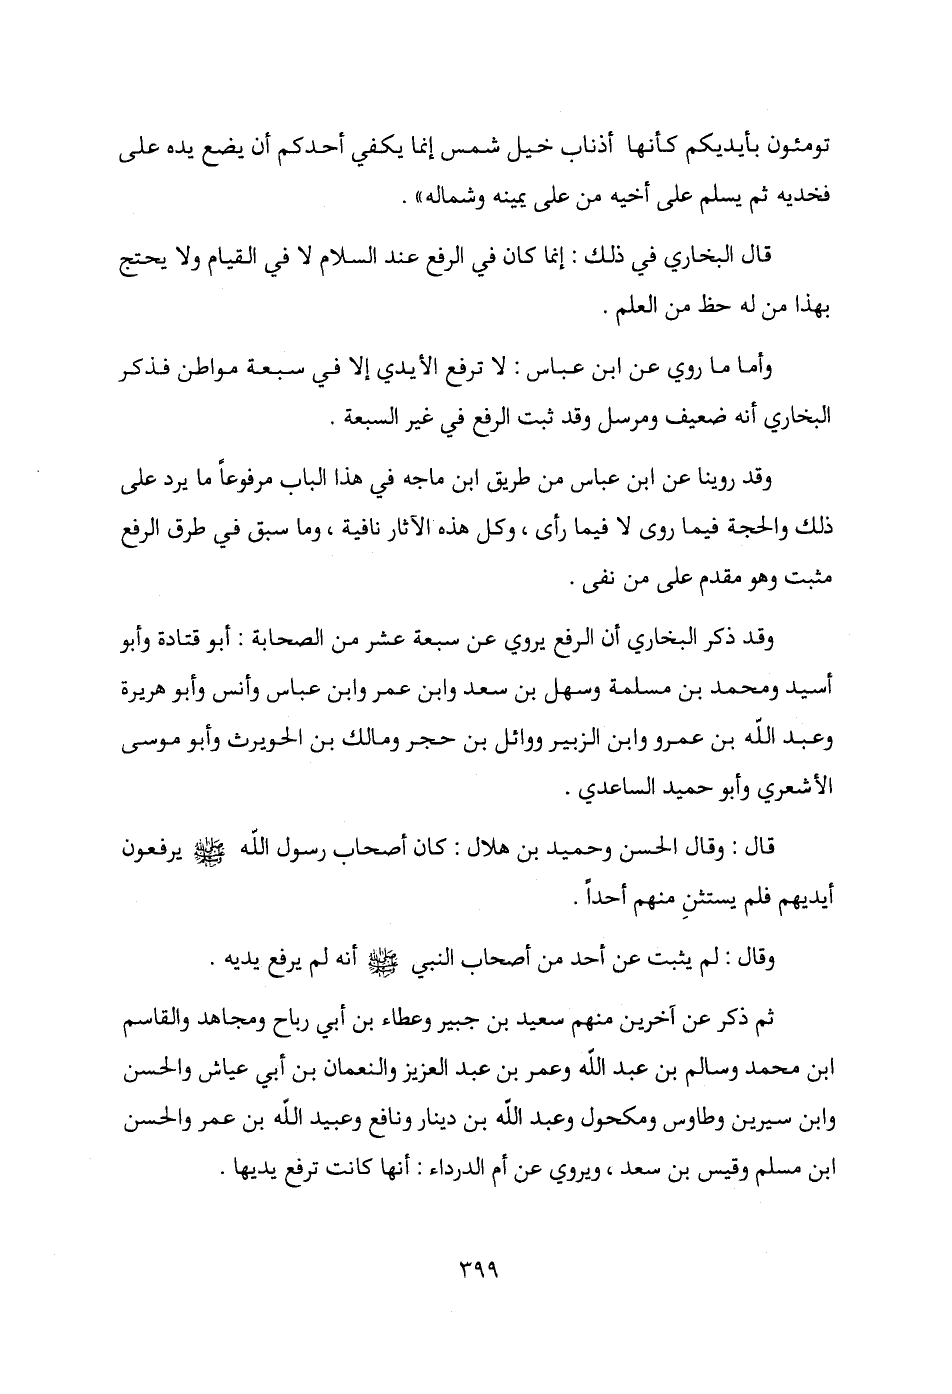 تومئون بأيديكم كأنها أذناب خيل شمس إنما يكفي أحدكم أن يضع يده على
فخديه ثم يسلم على أخيه من على يمينه وشماله» .
قال البخاري في ذلك : إنما كان في الرفع عند السلام لا في القيام ولا يحتج
بهذا من له حظ من العلم .
وأما ما روي عن ابن عباس : لا ترفع الأيدي إلا في سبعة مواطن فذكر
البخاري أنه ضعيف ومرسل وقد ثبت الرفع في غير السبعة .
وقد روينا عن ابن عباس من طريق ابن ماجه في هذا الباب مرفوعاً ما يرد على
ذلك والحجة فيما روى لا فيما رأى ، وكل هذه الآثار نافية ، وما سبق في طرق الرفع
مثبت وهو مقدم على من نفى .
وقد ذكر البخاري أن الرفع يروي عن سبعة عشر من الصحابة : أبو قتادة وأبو
أسيد ومحمد بن مسلمة وسهل بن سعد وابن عمر وابن عباس وأنس وأبو هريرة
وعبد اللّه بن عمرو وابن الزبير ووائل بن حجر ومالك بن الحويرث وأبو موسى
الأشعري وأبو حميد الساعدي .
قال : وقال الحسن وحميد بن هلال : كان أصحاب رسول اللّه ﷺ يرفعون
أيديهم فلم يستثنِ منهم أحداً .
وقال : لم يثبت عن أحد من أصحاب النبي ﷺ أنه لم يرفع يديه .
ثم ذكر عن آخرين منهم سعيد بن جبير وعطاء بن أبي رباح ومجاهد والقاسم
ابن محمد وسالم بن عبد اللّه وعمر بن عبد العزيز والنعمان بن أبي عياش والحسن
وابن سيرين وطاوس ومكحول وعبد اللّه بن دينار ونافع وعبيد اللّه بن عمر والحسن
ابن مسلم وقيس بن سعد ، ويروي عن أم الدرداء : أنها كانت ترفع يديها .
٣٩٩